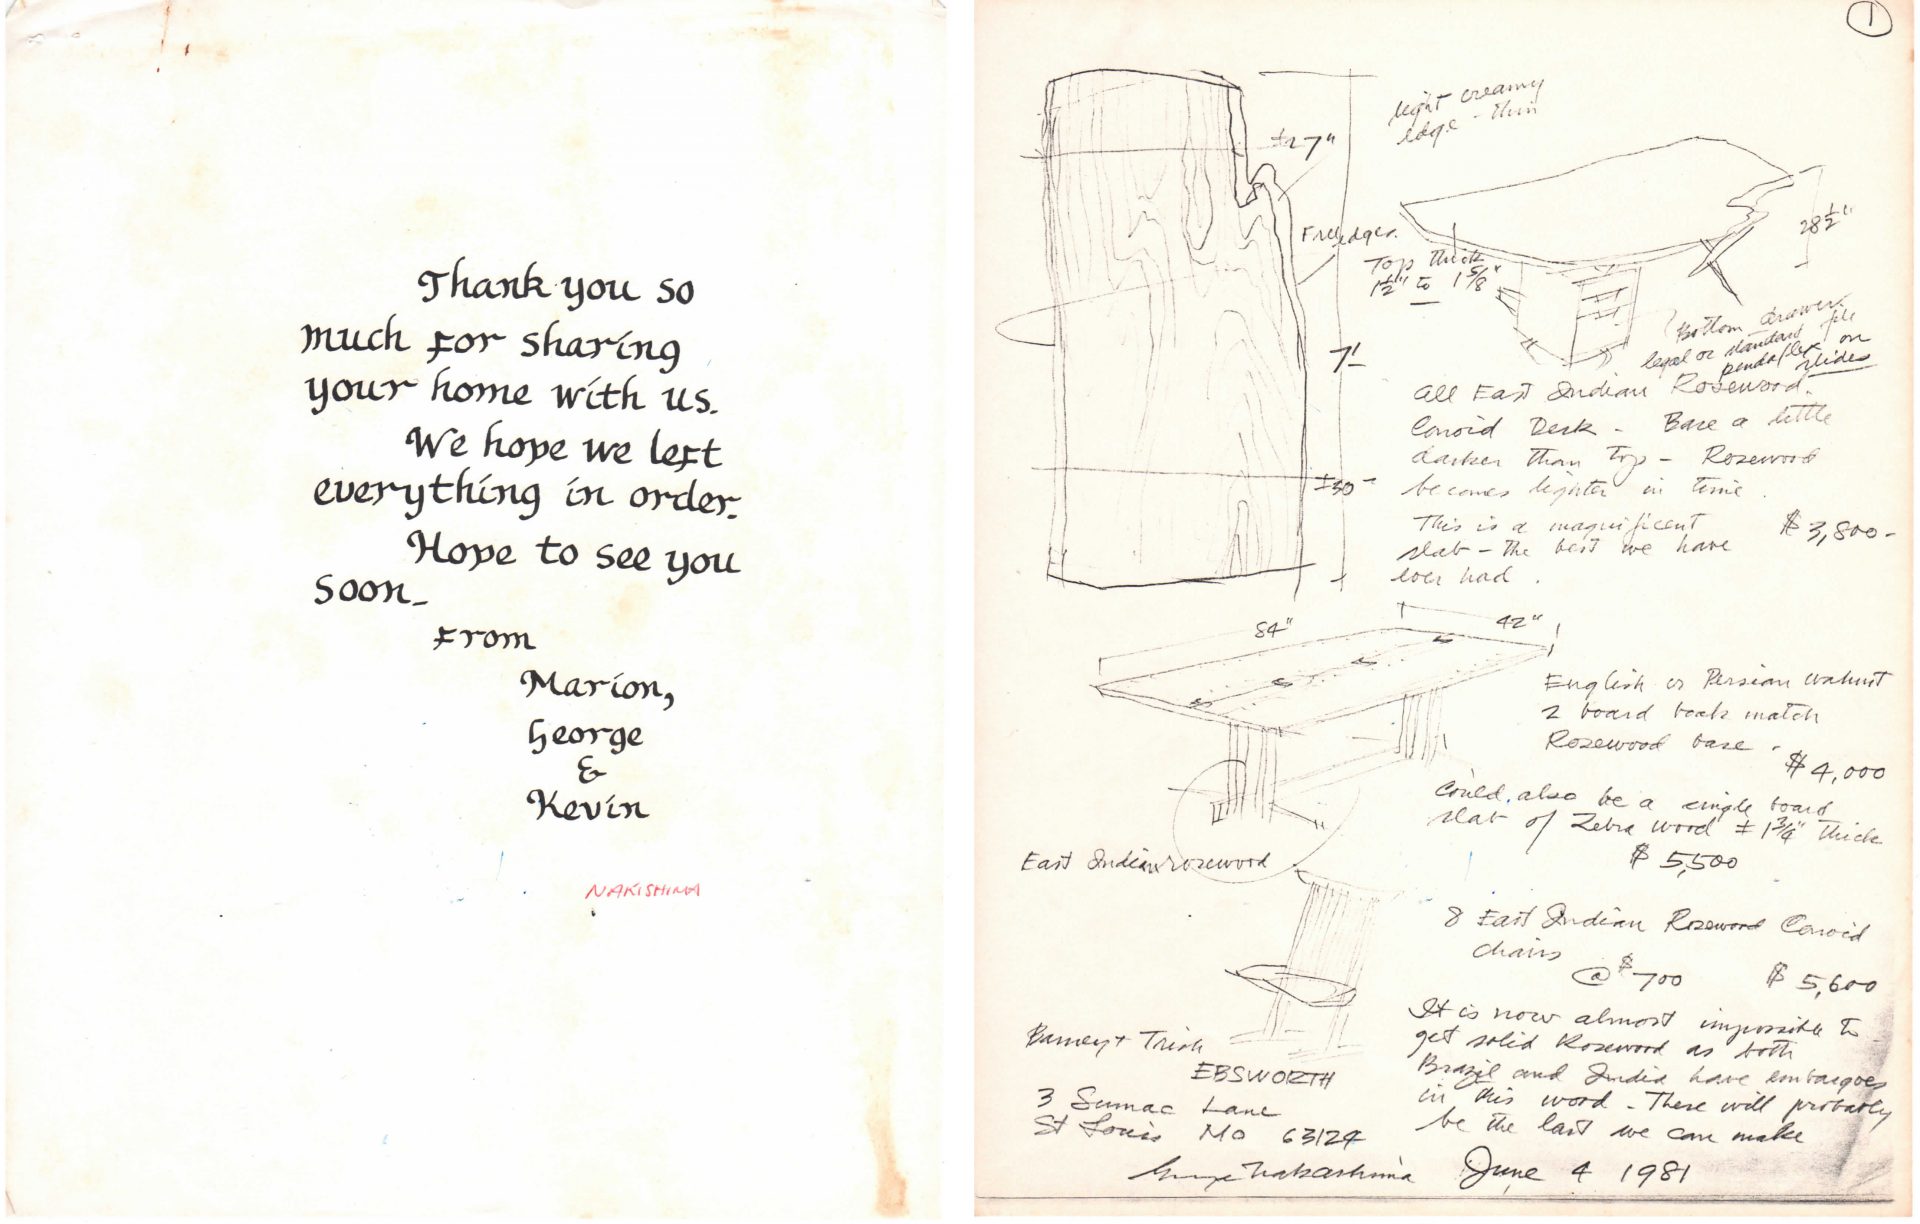 Thank you so
much for sharing
your home with us.
We hope we left
everything in order.
Hope to see you
soon_
From
Marion,
George
&
Kevin
NAKISHIMA
1
light creamy
edge - thin
±27"
Free edges.
Top thick
1½" to 1⅝"
28½"
7'-
±30-
Bottom drawer
legal or standard file
pendaflex on
slides
All East Indian Rosewood.
Conoid Desk - Base a little
darker than top - Rosewood
becomes lighter in time.
This is a magnificent
slab - the best we have
ever had.
$3,800-
84"
42"
English or Persian walnut
2 board book match
Rosewood base.
$4,000
Could also be a single board
slab of Zebra wood ± 1¾" thick
$5,500
East Indian rosewood
8 East Indian Rosewood Conoid
chairs
@ $700 $5,600
It is now almost impossible to
get solid Rosewood as both
Brazil and India have embargoes
in this wood - These will probably
be the last we can make
Barney + Trish
EBSWORTH
3 Sumac Lane
St Louis Mo 63124
George Nakashima June 4 1981